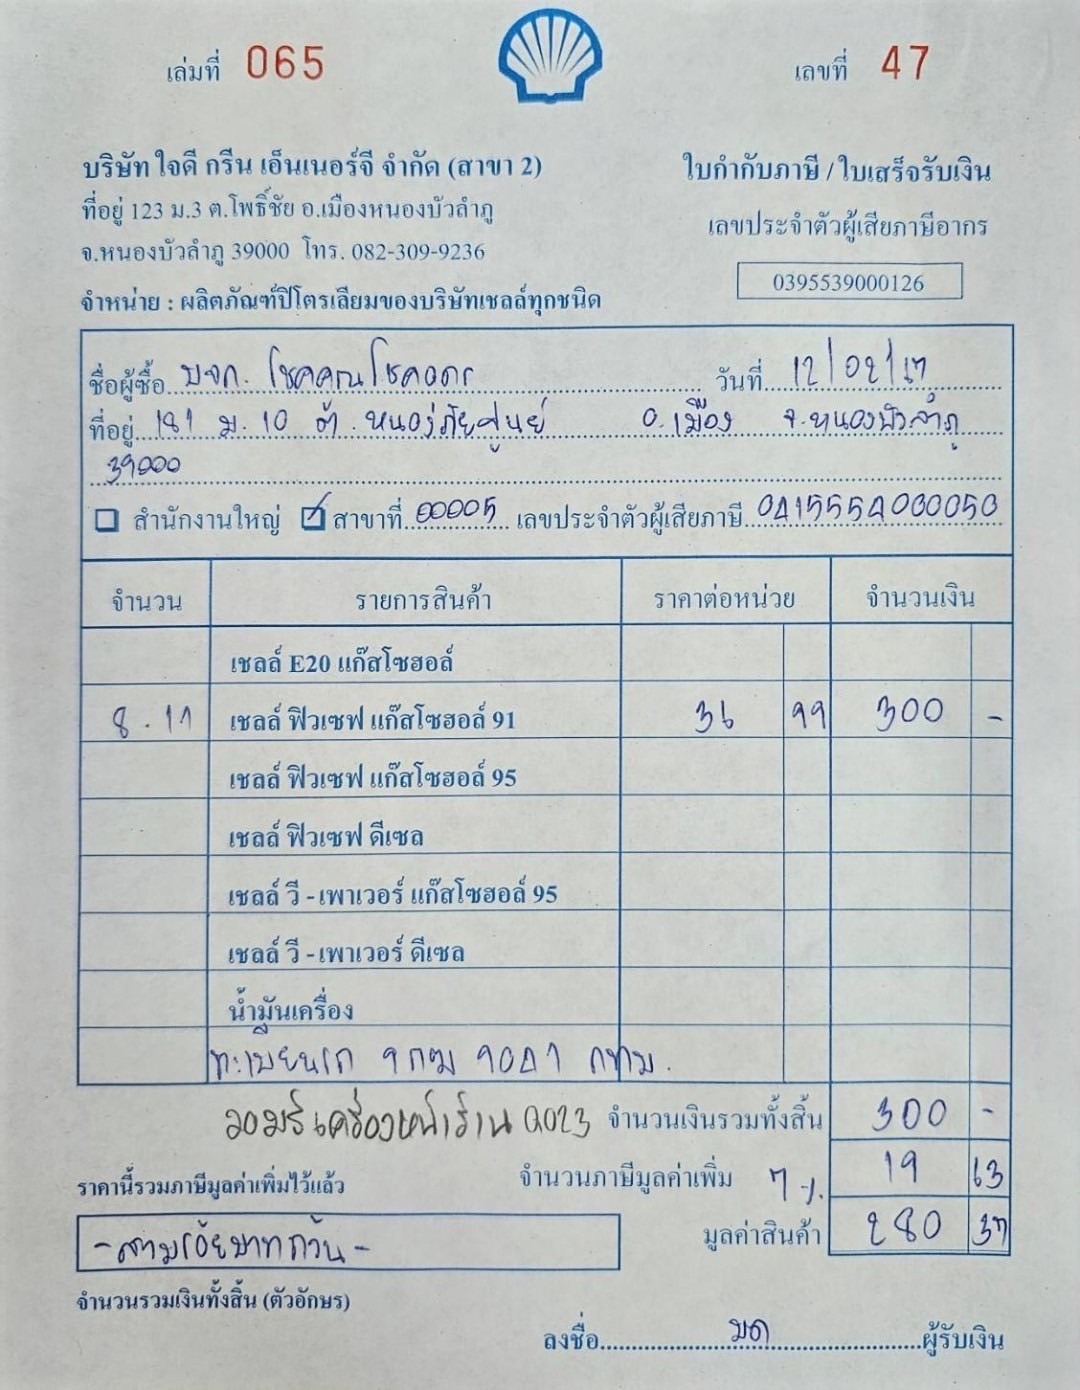 เล่มที่ 065
เลขที่ 47
บริษัท ใจดี กรีน เอ็นเนอร์จี จำกัด (สาขา 2)
ใบกำกับภาษี / ใบเสร็จรับเงิน
ที่อยู่ 123 ม.3 ต.โพธิ์ชัย อ.เมืองหนองบัวลำภู
เลขประจำตัวผู้เสียภาษีอากร
จ.หนองบัวลำภู 39000 โทร. 082-309-9236
0395539000126
จำหน่าย : ผลิตภัณฑ์ปิโตรเลียมของบริษัทเชลล์ทุกชนิด
ชื่อผู้ซื้อ บจก. โชคคูณโชค วันที่ 12/02/67
ที่อยู่ 181 ม.10 ต. หนองภัยศูนย์ อ.เมือง จ.หนองบัวลำภู
39000
สำนักงานใหญ่ สาขาที่ 00005 เลขประจำตัวผู้เสียภาษี 0415554000050
จำนวน รายการสินค้า ราคาต่อหน่วย จำนวนเงิน
เชลล์ E20 แก๊สโซฮอล์
8.11 เชลล์ ฟิวเซฟ แก๊สโซฮอล์ 91 36 99 300 -
เชลล์ ฟิวเซฟ แก๊สโซฮอล์ 95
เชลล์ ฟิวเซฟ ดีเซล
เชลล์ วี - เพาเวอร์ แก๊สโซฮอล์ 95
เชลล์ วี - เพาเวอร์ ดีเซล
น้ำมันเครื่อง
ทะเบียนรถ กทม.
จำนวนเงินรวมทั้งสิ้น 300 -
ราคานี้รวมภาษีมูลค่าเพิ่มไว้แล้ว จำนวนภาษีมูลค่าเพิ่ม 7 % 19 63
-สามร้อยบาทถ้วน- มูลค่าสินค้า 280 37
จำนวนรวมเงินทั้งสิ้น (ตัวอักษร)
ลงชื่อ มด ผู้รับเงิน